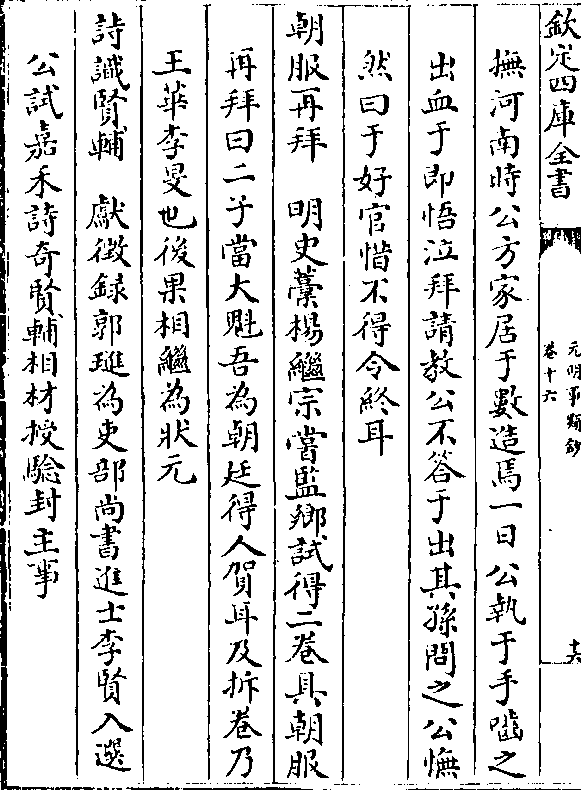 欽定四庫全書
元明事類鈔
卷十六
十六
撫河南時公方家居于數造焉一日公執于手嚙之
出血于即悟泣拜請教公不答于出其孫問之公憮
然曰于好官惜不得令終耳
朝服再拜　明史藁楊繼宗嘗監鄉試得二卷具朝服
再拜曰二子當大魁吾為朝廷得人賀耳及拆卷乃
王華李旻也後果相繼為狀元
詩識賢輔　獻徵録郭璡為吏部尚書進士李賢入選
公試嘉禾詩奇賢輔相材授驗封主事